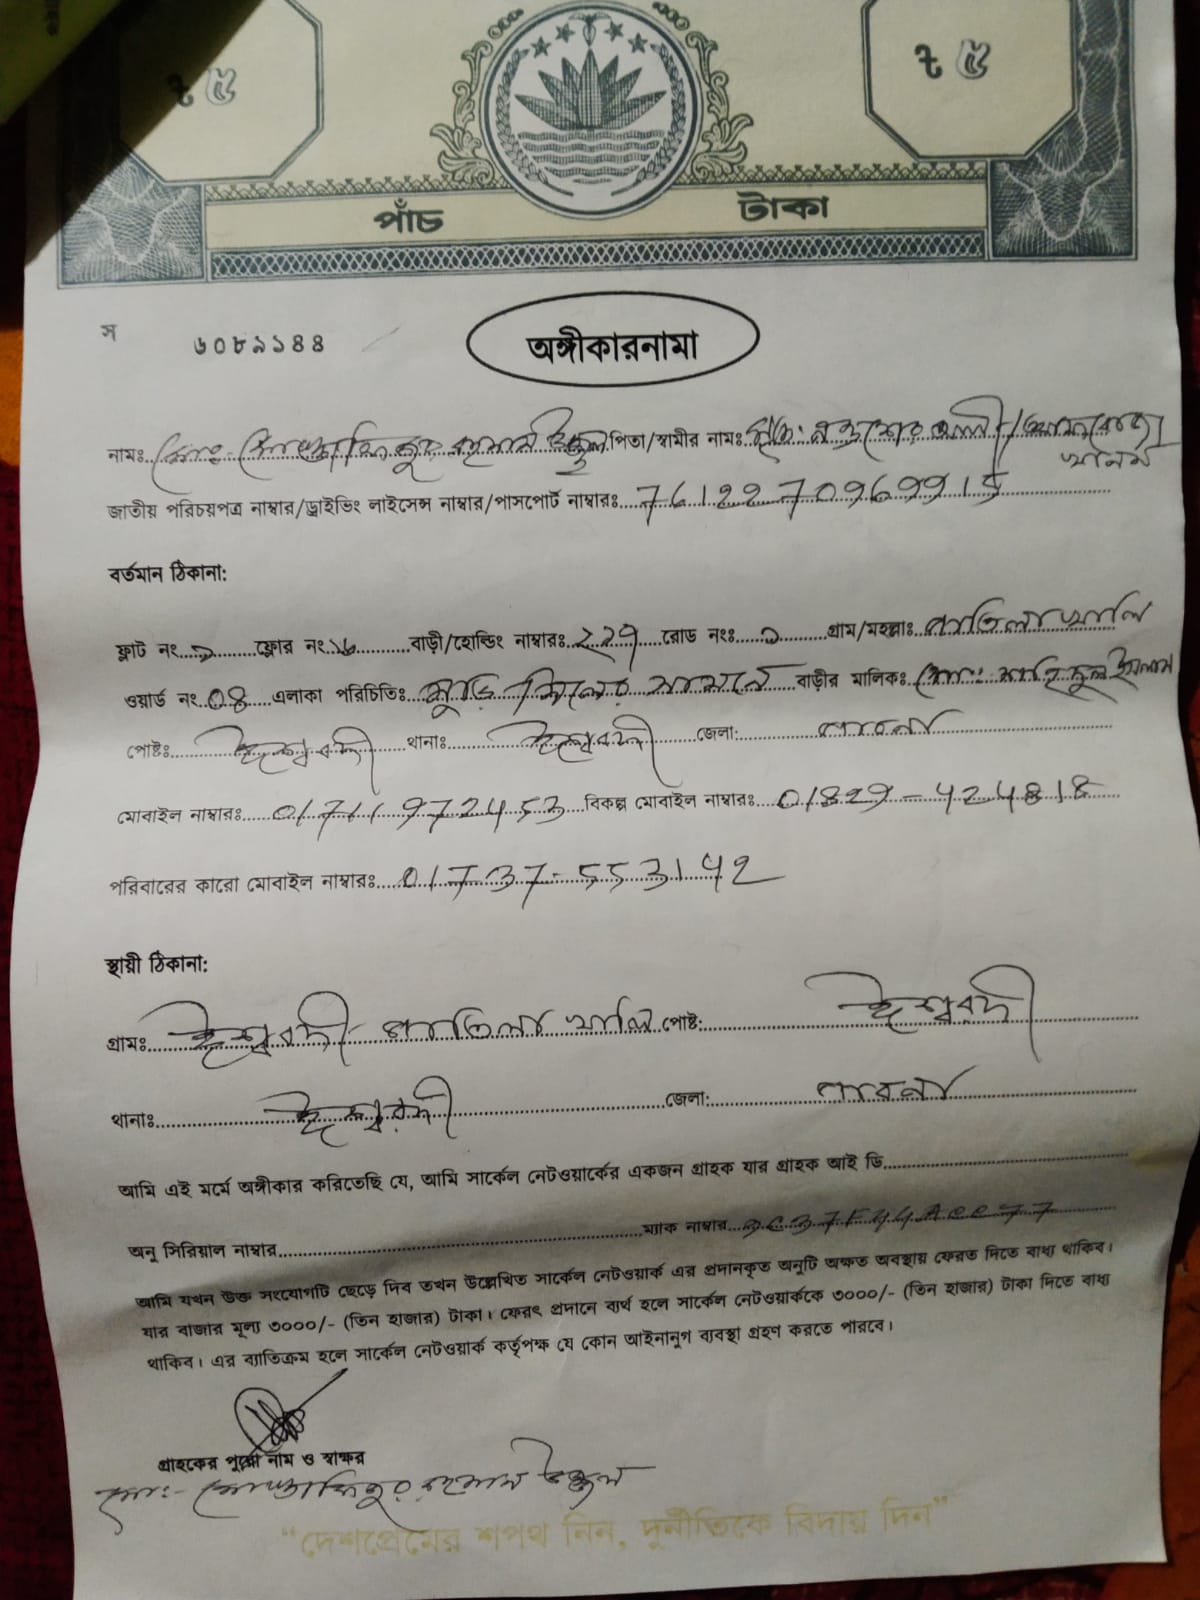 ৳ ৫ ৳ ৫
পাঁচ টাকা
স ৬০৮৯১৪৪
অঙ্গীকারনামা
নামঃ মোঃ মোস্তাফিজুর রহমান উজ্জ্বল পিতা/স্বামীর নামঃ মৃতঃ আলী/
খানম
জাতীয় পরিচয়পত্র নাম্বার/ড্রাইভিং লাইসেন্স নাম্বার/পাসপোর্ট নাম্বারঃ 7612270969915
বর্তমান ঠিকানা:
ফ্লাট নং ১ ফ্লোর নং ১৬ বাড়ী/হোল্ডিং নাম্বারঃ ২২৭ রোড নংঃ ১ গ্রাম/মহল্লাঃ পাতিলাখালি
ওয়ার্ড নং 04 এলাকা পরিচিতিঃ মুড়ি মিলের সামনে বাড়ীর মালিকঃ মোঃ ইসলাম
পোষ্টঃ ঈশ্বরদী থানাঃ ঈশ্বরদী জেলা: পাবনা
মোবাইল নাম্বারঃ 01711972453 বিকল্প মোবাইল নাম্বারঃ 01829-424818
পরিবারের কারো মোবাইল নাম্বারঃ 01737-553142
স্থায়ী ঠিকানা:
গ্রামঃ ঈশ্বরদী পাতিলাখালি পোষ্ট: ঈশ্বরদী
থানাঃ ঈশ্বরদী জেলা: পাবনা
আমি এই মর্মে অঙ্গীকার করিতেছি যে, আমি সার্কেল নেটওয়ার্কের একজন গ্রাহক যার গ্রাহক আই ডি
অনু সিরিয়াল নাম্বার ম্যাক নাম্বার
আমি যখন উক্ত সংযোগটি ছেড়ে দিব তখন উল্লেখিত সার্কেল নেটওয়ার্ক এর প্রদানকৃত অনুটি অক্ষত অবস্থায় ফেরত দিতে বাধ্য থাকিব।
যার বাজার মূল্য ৩০০০/- (তিন হাজার) টাকা। ফেরৎ প্রদানে ব্যর্থ হলে সার্কেল নেটওয়ার্ককে ৩০০০/- (তিন হাজার) টাকা দিতে বাধ্য
থাকিব। এর ব্যাতিক্রম হলে সার্কেল নেটওয়ার্ক কর্তৃপক্ষ যে কোন আইনানুগ ব্যবস্থা গ্রহণ করতে পারবে।
গ্রাহকের পুরো নাম ও স্বাক্ষর
মোঃ- মোস্তাফিজুর রহমান উজ্জ্বল
“দেশপ্রেমের শপথ নিন, দুর্নীতিকে বিদায় দিন”